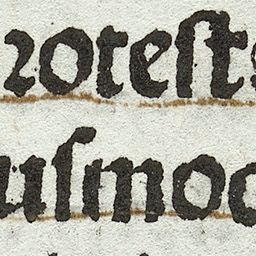 roteſt
uſmod